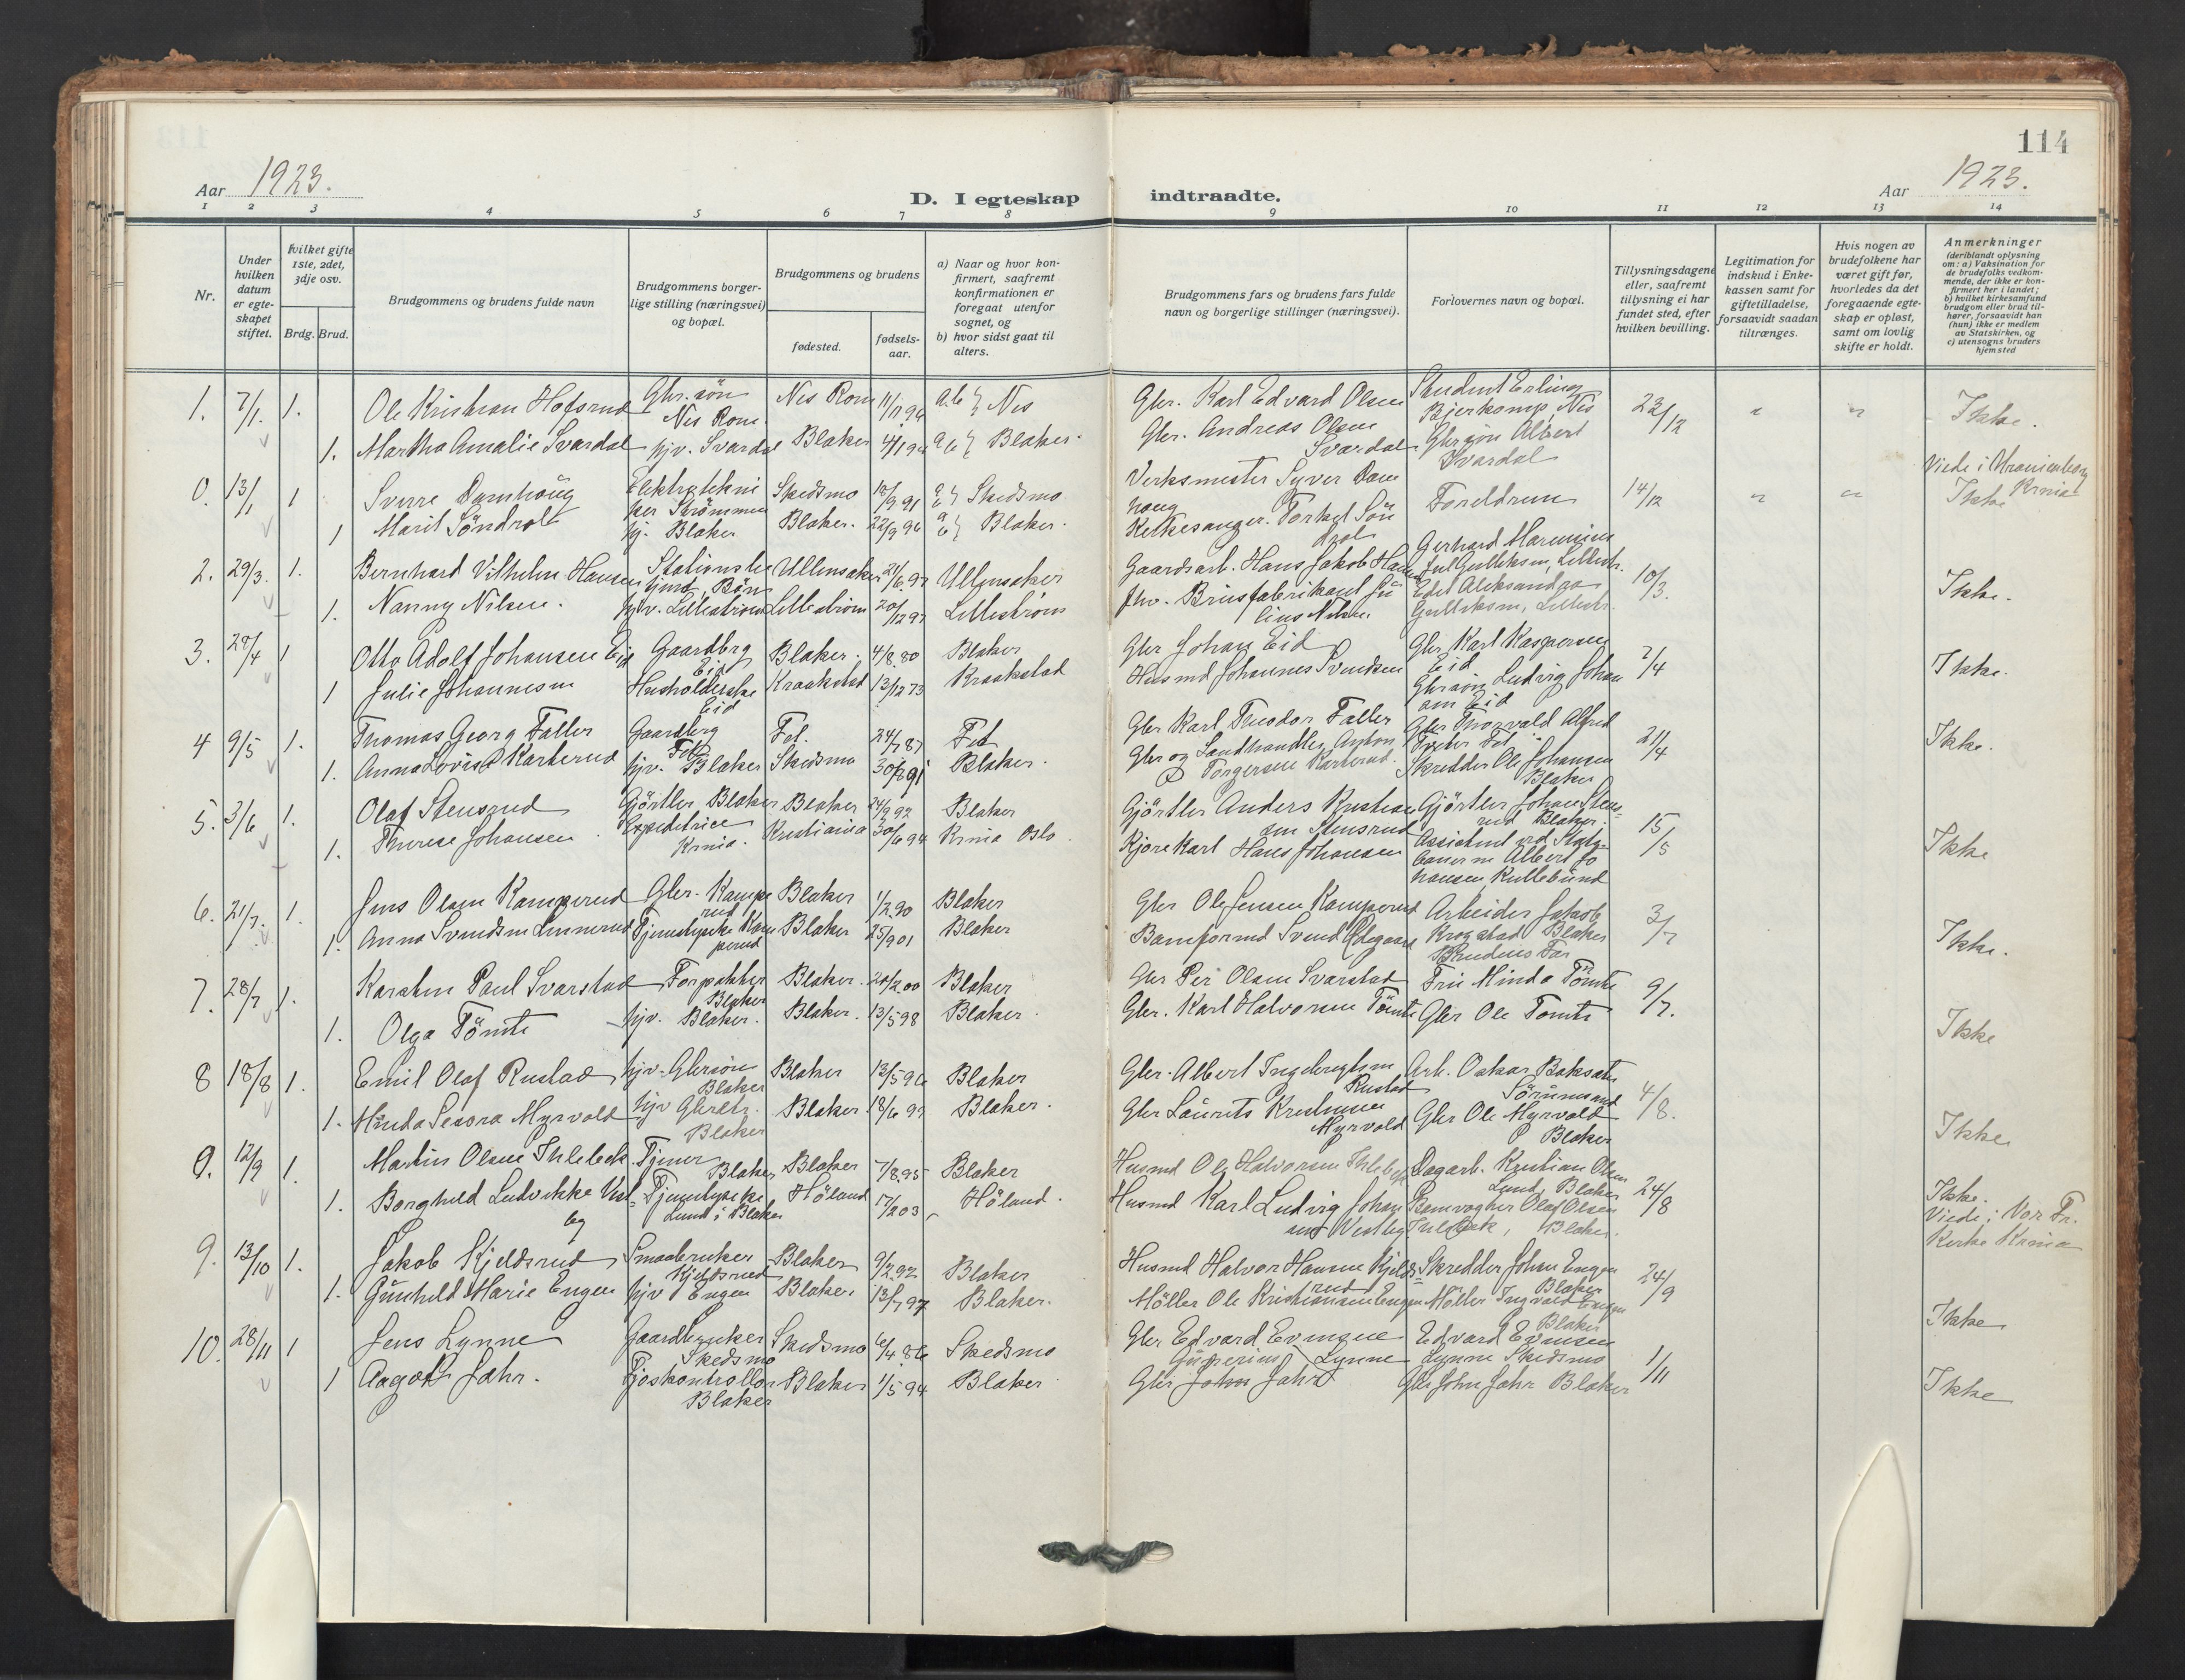 114
Aar 1923.
D. I egteskap indtraadte.
Aar 1923.
1 2 3 4 5 6 7 8 9 10 11 12 13 14
Nr.
Under hvilken datum er egteskapet stiftet.
Hvilket gifte 1ste, 2det, 3dje osv.
Brdg. Brud.
Brudgommens og brudens fulde navn
Brudgommens borgerlige stilling (næringsvei) og bopæl.
Brudgommens og brudens
fødested.
fødselsaar.
a) Naar og hvor konfirmert, saafremt konfirmationen er foregaat utenfor sognet, og
b) hvor sidst gaat til alters.
Brudgommens fars og brudens fars fulde navn og borgerlige stillinger (næringsvei).
Forlovernes navn og bopæl.
Tillysningsdagene eller, saafremt tillysning ei har fundet sted, efter hvilken bevilling.
Legitimation for indskud i Enkekassen samt for giftetilladelse, forsaavidt saadan tiltrænges.
Hvis nogen av brudefolkene har været gift før, hvorledes da det foregaaende egteskap er opløst, samt om lovlig skifte er holdt.
Anmerkninger (deriblandt oplysning om: a) Vaksination for de brudefolks vedkommende, der ikke er konfirmert her i landet; b) hvilket kirkesamfund brudgom eller brud tilhører, forsaavidt han (hun) ikke er medlem av Statskirken, og c) utensogns bruders hjemsted
1. 7/1. 1. Ole Kristian Hofsrud Gbr.søn Nes Rom. Nes Rom 11/11 94 a.b } Nes Gbr. Karl Edvard Olsen Student Erling Bjerkamp, Nes 22/12 " " Ikke.
1. Martha Amalie Svardal hjv. Svardal Blaker 4/1 94 a b } Blaker. Gbr. Andreas Olsen Svardal Gbrsøn Albert Svardal
0. 13/1 1 Sverre Damhaug Elektrotekniker Strømmen Skedsmo 10/9 91 a b } Skedsmo Verksmester Syver Damhaug Foreldrene 14/12 " " Viede i Uranienborg Krnia Ikke
1 Marit Söndrol hj. Blaker Blaker. 22/9 96 a b } Blaker. Kirkesanger. Torkel Söndrol
2. 29/3. 1. Bernhard Vilhelm Hansen Ullensaker 21/6 97 Ullensaker Gaardsarb. Hans Jakob Hansen Gerhard Marenius Jul Gulliksen, Lillestr. 10/3. Ikke.
1. Nanny Nilsen. hjv. Lilleström Lilleström 20/12 97 Lilleström fhv. Brusfabrikant Julius Nilsen Edel Aleksandra Gulliksen, Lillestr.
3. 28/4 1 Otto Adolf Johansen Eid Gaardbrg Eid Blaker. 4/8. 80 Blaker Gbr Johan Eid Gbr Karl Kaspersen Eid 7/4 Ikke.
1 Julie Johannesen Husholderske Eid Kraakstad 13/12 73 Kraakstad Husmd Johannes Svendsen Gbrsøn Ludvig Johansen Eid
4 9/5 1. Thomas Georg Faller Gaardbrg Fet Fet. 24/7 87 Fet Gbr Karl Theodor Faller Gbr Thorvald Alfred Fet 21/4 Ikke.
1. Anna Lovise Karterud hjv. Blaker Skedsmo 30/8 91 Blaker. Gbr og Landhandler Anton Torgersen Karterud. Skredder Ole Johansen Blaker
5. 3/6 1. Olaf Stensrud Gjörtler Blaker Blaker 24/9 92 Blaker Gjörtler Anders Kristiansen Stensrud Gjörtler Johan Stensrud Blaker. 15/5 Ikke
1. Therese Johansen Expeditrice Krnia. Kristiania 30/6 94 Krnia Oslo Kjörekarl Hans Johansen Assistent ved Statsbanerne Albert Johansen Kullebund
6. 21/7. 1. Jens Olsen Kamperud Gbr. Kamperud Blaker 1/2 90 Blaker Gbr Ole Jensen Kamperud Arbeider Jakob Krogstad Blaker 3/7 Ikke.
1. Anna Svendsen Linnerud Tjenestepike Kamperud Blaker 25/9 01 Blaker Baneformd Svend Ödegaard Brudens Far
7. 28/7 1. Karsten Paul Svarstad Forpakter Blaker Blaker. 20/2 00 Blaker Gbr Per Olsen Svarstad Fru Minda Tömte 9/7. Ikke
1. Olga Tömte hjv. Blaker. Blaker. 13/5 98 Blaker. Gbr. Karl Halvorsen Tömte Gbr Ole Tomte
8 18/8 1. Emil Olaf Rustad hjv. Gbrsøn Blaker Blaker 12/5 96 Blaker Gbr. Albert Ingebregtsen Rustad Arb. Oskar Baksæter Sörumsand 4/8. Ikke
1. Minda Senora Myrvold hjv Gbrdtr. Blaker Blaker 18/6 97 Blaker. Gbr Laurits Kristiansen Myrvold Gbr Ole Myrvold Blaker
0. 12/9 1. Martin Olsen Ihlebek Tjener Blaker Blaker 7/8. 95 Blaker Husmd Ole Halvorsen Ihlebek Dagarb. Kristian Olsen Lund, Blaker 24/8 Ikke. Viede i Vor Fr. Kirke Krnia
1. Borghild Ludvikke Vestby Tjenestepike Lund i Blaker Höland 17/2 03 Höland. Husmd Karl Ludvig Johansen Vestby Banevogter Olaf Olsen Ihlebek, Blaker.
9. 13/10 1. Jakob Kjeldsrud Smaabruker Kjeldsrud Blaker 9/2. 92 Blaker Husmd Halvor Hansen Kjeldsrud Skredder Johan Engen Blaker 24/9 Ikke
1. Gunhild Marie Engen hjv Engen Blaker 13/7 97 Blaker. Möller Ole Kristiansen Engen Möller Ingvald Engen Blaker
10. 28/11 1 Jens Lynne Gaardbruker Skedsmo Skedsmo 6/4. 86 Skedsmo Gbr Edvard Evensen Lynne Edvard Evensen Lynne Skedsmo 1/11 Ikke
1 Aagot Jahr. Fjøskontrollör Blaker Blaker 1/5 94 Blaker Gbr John Jahr Gbr John Jahr Blaker